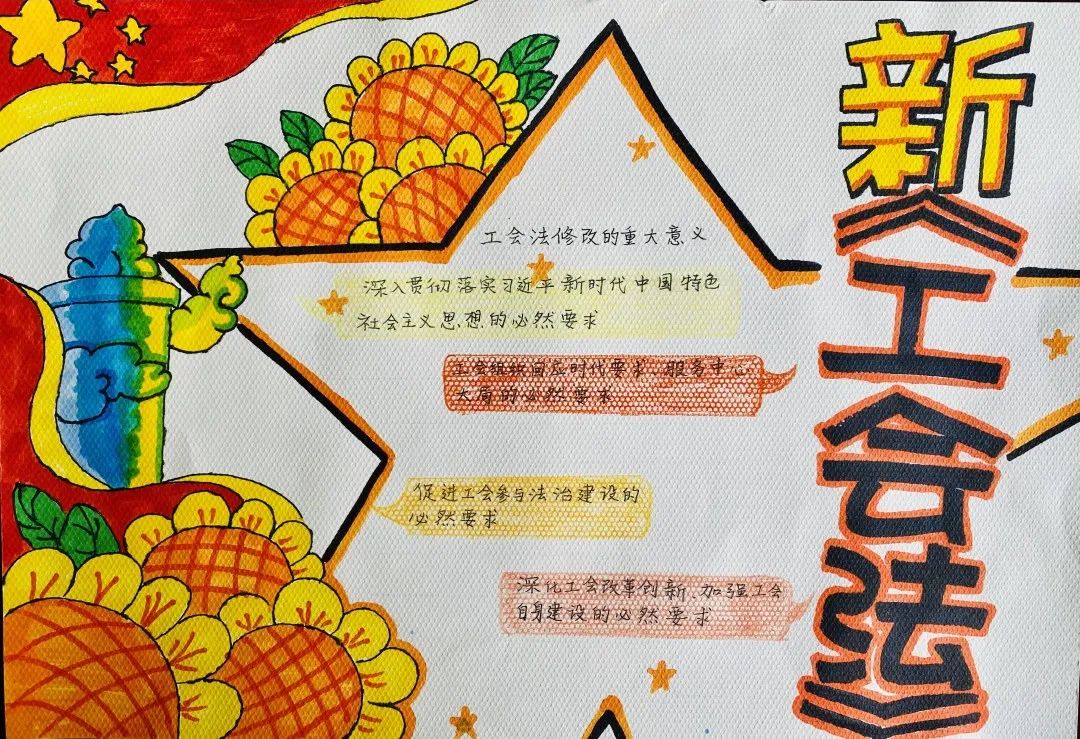 新《工会法》
工会法修改的重大意义
深入贯彻落实习近平新时代中国特色
社会主义思想的必然要求
工会组织回应时代要求、服务中心
大局的必然要求
促进工会参与法治建设的
必然要求
深化工会改革创新、加强工会
自身建设的必然要求